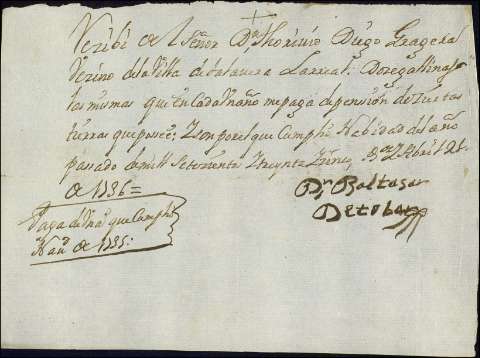 Rezibi de el Señor Dn Diego Gragera
Vezino de la Villa de talavera La real: Doze gallinas
las mismas que en Cada Un año me paga de pension de zier tas
tierras que posee; Y son por el que Cumplio Nabidad del año
pasado de mill Setezientos Treynta Y zinco, Abril 25
de 1736=
Dn Baltasar
De tobar
Paga de Una que Cumplio
Nad de 1735: